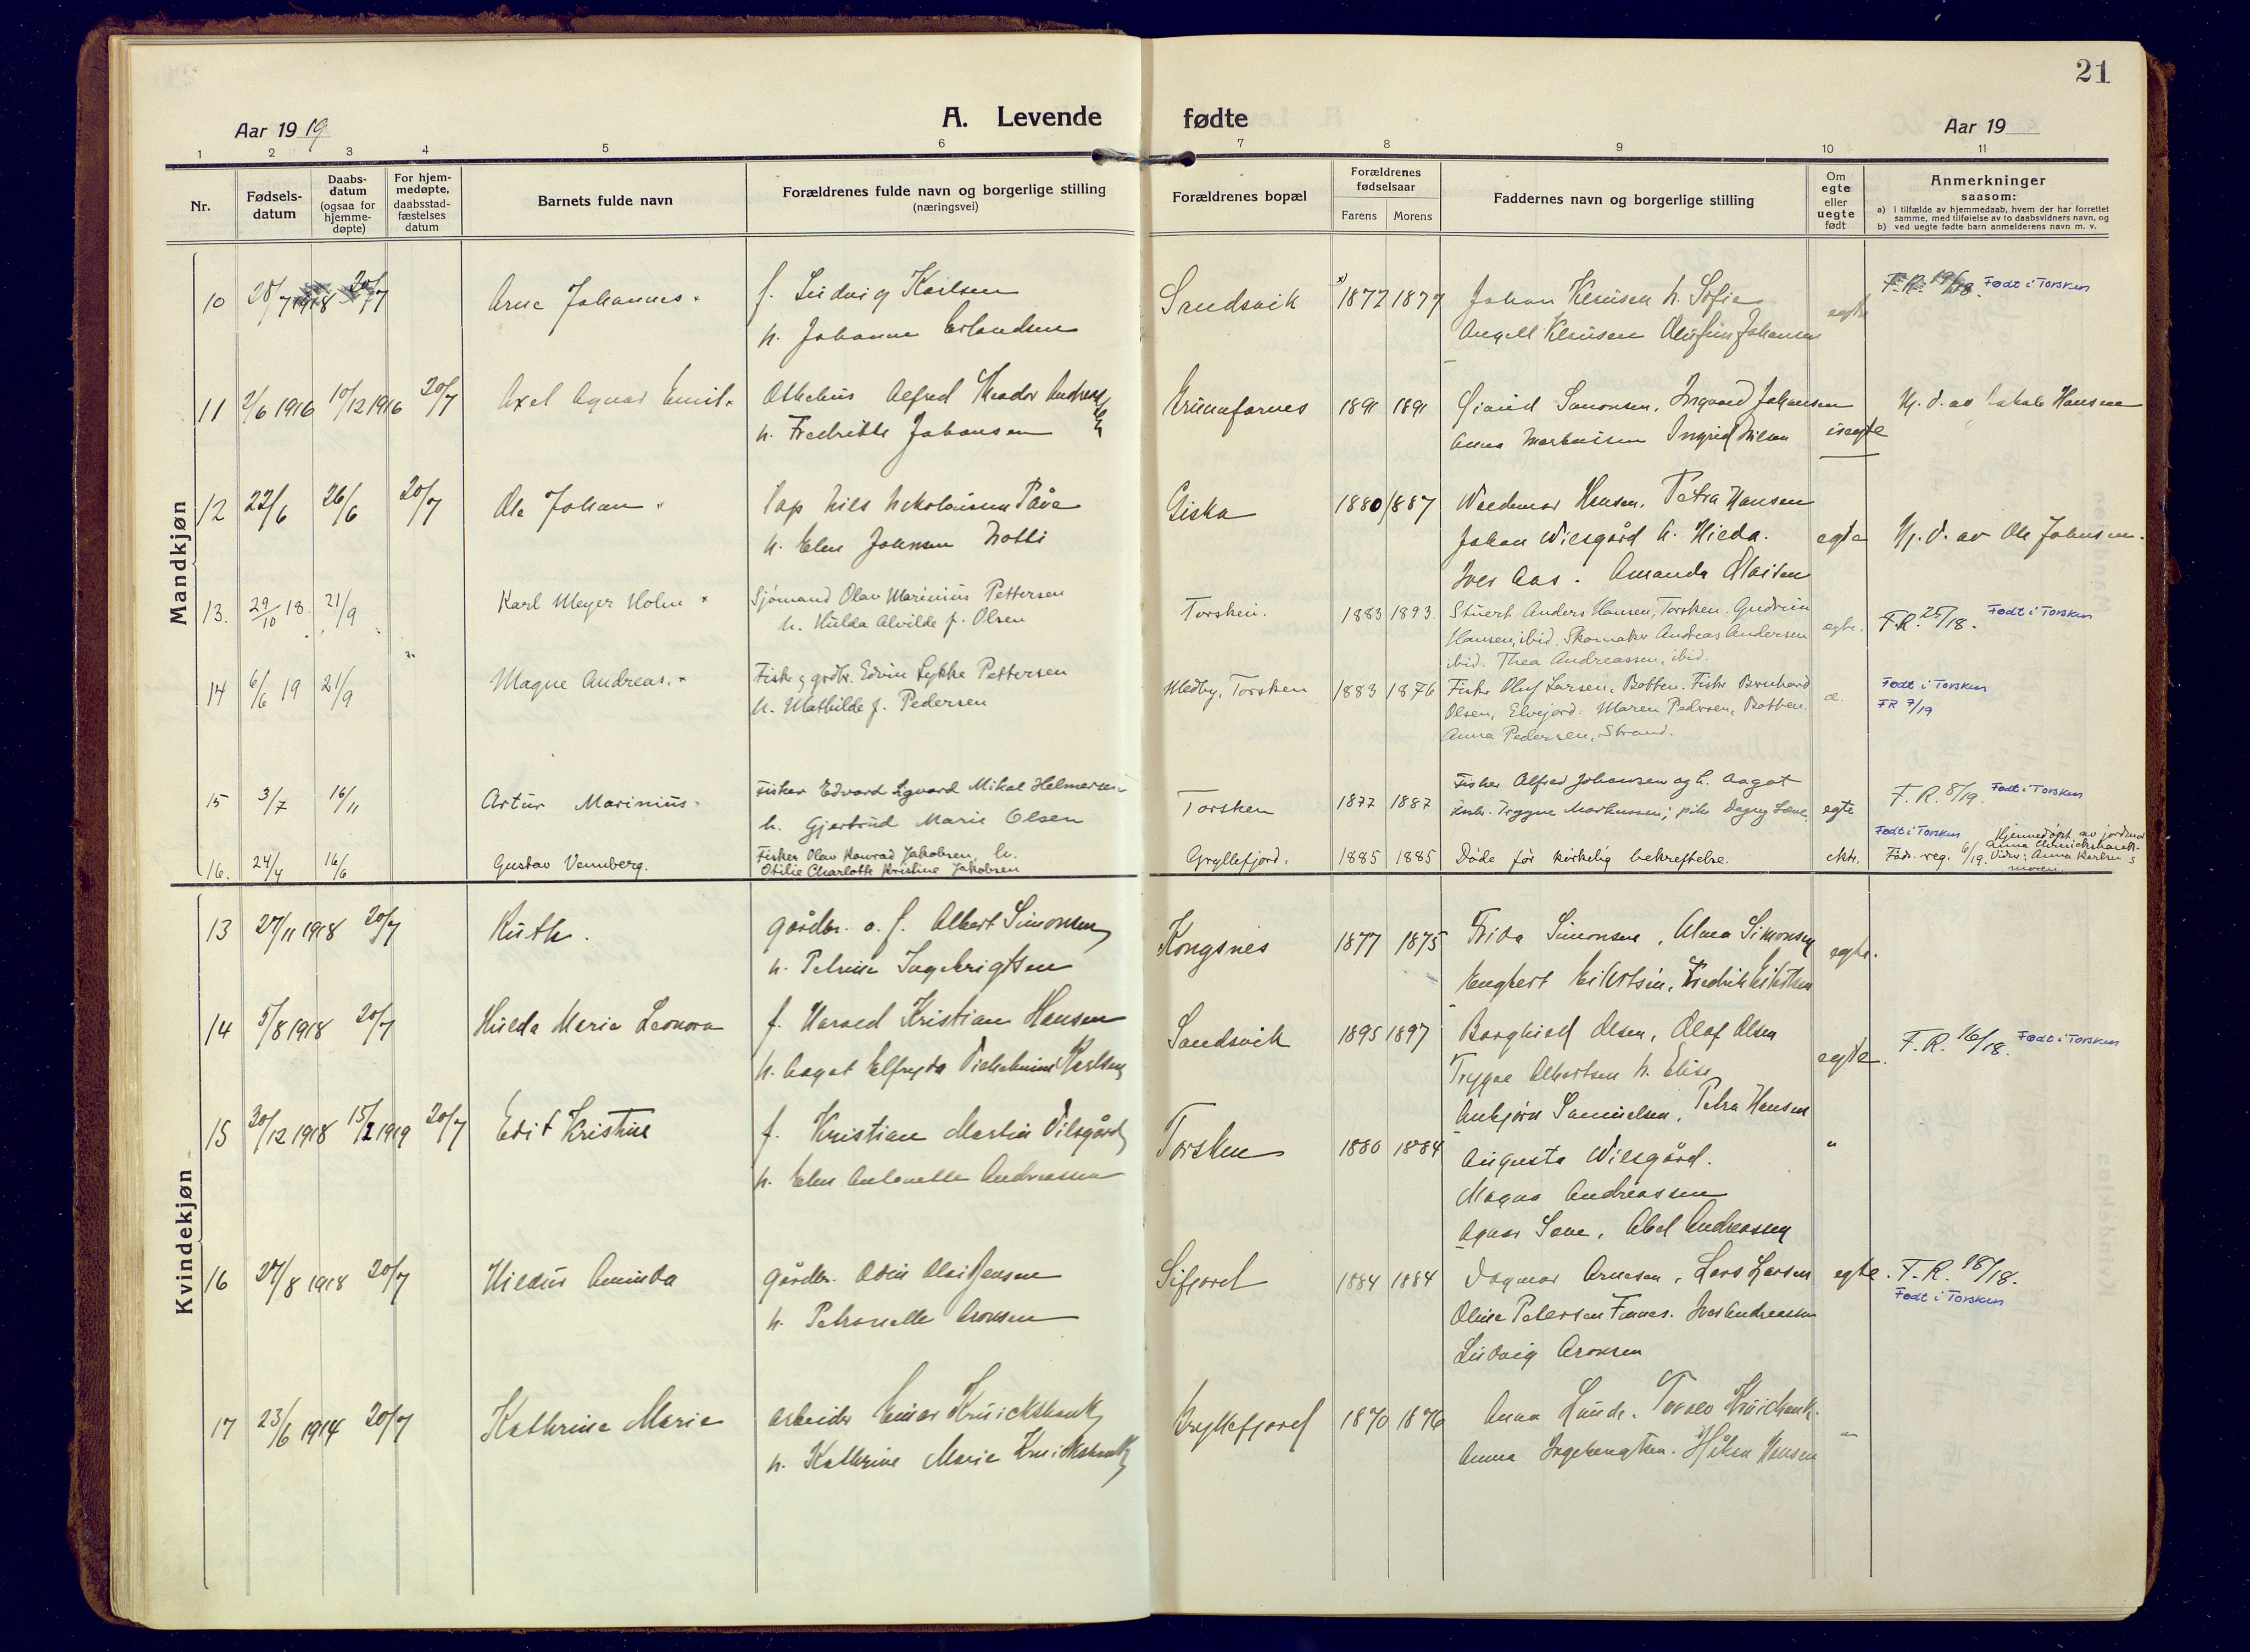 21
Aar 1919
A. Levende fødte
Aar 19
1 2 3 4 5 6 7 8 9 10 11
Nr.
Fødsels-
datum
Daabs-
datum
(ogsaa for
hjemme-
døpte)
For hjem-
medøpte,
daabsstad-
fæstelses
datum
Barnets fulde navn
Forældrenes fulde navn og borgerlige stilling
(næringsvei)
Forældrenes bopæl
Forældrenes
fødselsaar
Farens Morens
Faddernes navn og borgerlige stilling
Om
egte
eller
uegte
født
Anmerkninger
saasom:
a) i tilfælde av hjemmedaab, hvem der har forrettet
samme, med tilføielse av to daabsvidners navn, og
b) ved uegte fødte barn anmelderens navn m. v.
Mandkjøn
10 28/7 1918 20/7 Arne Johannes. f. Ludvig Karlsen Sandsvik 1872 1877 Johan h. Sofie egte F.R. 19/18. Født i Torsken
h. Johanne Erlandsen Angell Johansen
11 2/6 1916 10/12 1916 20/7 Axel Agnar Emil. Alfred Teodor Andersen 1891 1891 Simonsen, Ingvard Johansen uegte Hj. d. av Jakob Hansen
h. Fredrikke Johansen Anna Ingrid Nilsen
12 22/6 26/6 20/7 Ole Johan. Lap Nils Nikolaisen Giska 1880 1887 Waldemar Hansen, Petra Hansen egte Hj. d. av Ole Johnsen.
h. Elen Johnsen Johan Wilsgård h. Hilda.
Iver Aas. Amanda
13. 29/10 18. 21/9 Karl Meyer Holm Sjømand Olav Marinius Pettersen Torsken. 1883 1893. Stuert Anders Hansen, Torsken. Gudrun egte. F.R. 25/18. Født i Torsken
h. Hulda Alvilde f. Olsen Hansen, ibid. Skomaker Andreas Andersen
ibid. Thea Andreassen, ibid.
14 6/6 19 21/9 Magne Andreas. Fisk. g grdbr. Edvin Lykke Pettersen Medby, Torsken 1883 1876 Fisker Oluf Larsen, Botten. Fisker Bernhard e. Født i Torsken
h. Mathilde f. Pedersen Olsen, Elvejord. Maren Pedersen, Botten. FR 7/19
Anna Pedersen, Strand.
15 3/7 16/11 Artur Marinius. Fisker Edvard Sigvard Mikal Helmersen Torsken 1877 1887 Fisker Alfred Johansen og h. Aagot egte F.R. 8/19. Født i Torsken
h. Gjertrud Marie Olsen Trygve Markussen; pike Dagny Lane.
16. 24/4 16/6 Gustav Vennberg. Fisker Olav Konrad Jakobsen, h. Gryllefjord. 1885 1885 Døde før kirkelig bekreftelse. ekte. Født i Torsken Hjemmedøpt av jordmor
Otilie Charlotte Kristine Jakobsen Føds. reg. 6/19. Vidner: Anna Karlsen &
moren.
Kvindekjøn
13 27/11 1918 20/7 Ruth. gårdbr. o. f. Albert Simonsen Kongsnes 1877 1875 Frida Simonsen, Alma Simonsen egte.
h. Petrine Ingebrigtsen
14 5/8 1918 20/7 Hilda Marie Leonora f. Harald Kristian Hansen Sandsvik 1895 1897 Borghild Olsen, Olaf Olsen egte. F.R. 16/18. Født i Torsken
h. Aagot Elfrida Karlsen Trygve Albertsen h. Elise
15 30/12 1918 15/2 1919 20/7 Edit Kristine f. Kristian Martin Vilsgård Torsken 1880 1884 Ankjørn Samuelsen, Petra Hansen "
h. Elen Antonette Andreassen Augusta Wilsgård.
Magna Andreassen
16 27/8 1918 20/7 Hildur Aminda gårdbr. Odin Olai Jensen Sifjord 1884 1884 Agnes Lane, Abel Andreassen
h. Petronelle Aronsen Dagmar Arnesen, Lars Larsen egte. F.R. 18/18.
Oline Petersen Finnes. Iver Andreassen Født i Torsken
Ludvig Aronsen
17 23/6 1914 20/7 Kathrine Marie arbeider Einar Kruickshank Gryllefjord 1870 1876 Anna Lunde. Kruickshank. "
h. Kathrine Marie Kruickshank Anna Ingebrigtsen. Håkon Hansen